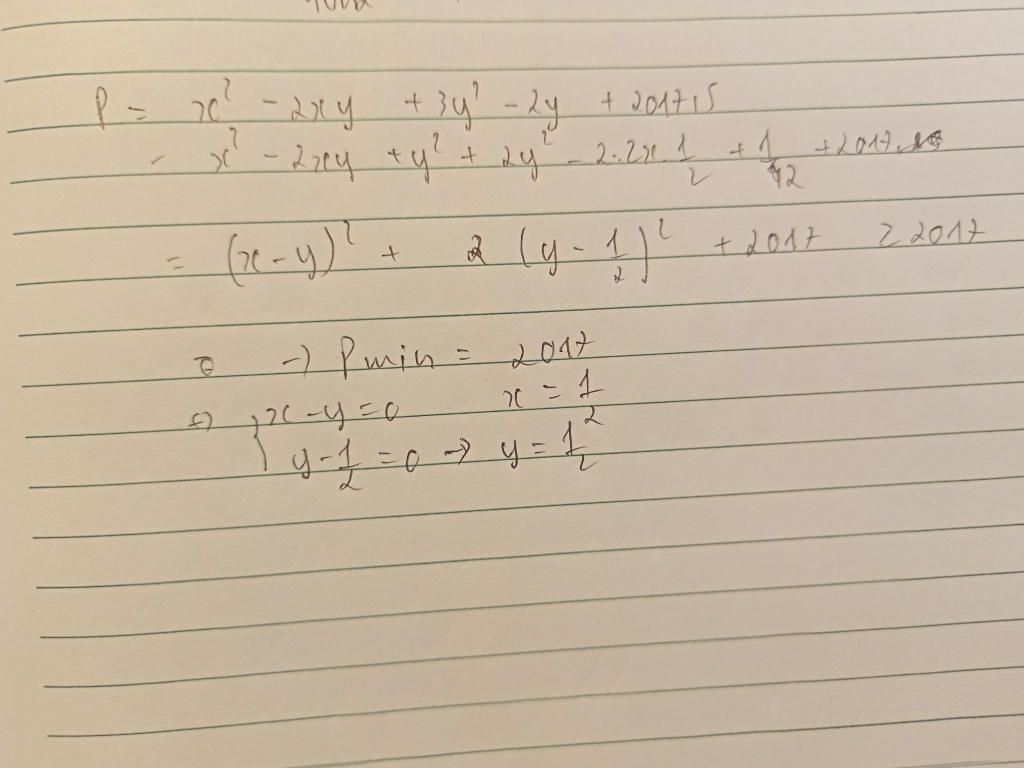 P = x² - 2xy + 3y² - 2y + 2017,5
= x² - 2xy + y² + 2y² - 2.2x.1/2 + 1/2 + 2017
= (x - y)² + 2 (y - 1/2)² + 2017 ≥ 2017
→ Pmin = 2017
⇔ { x - y = 0 x = 1/2
y - 1/2 = 0 → y = 1/2